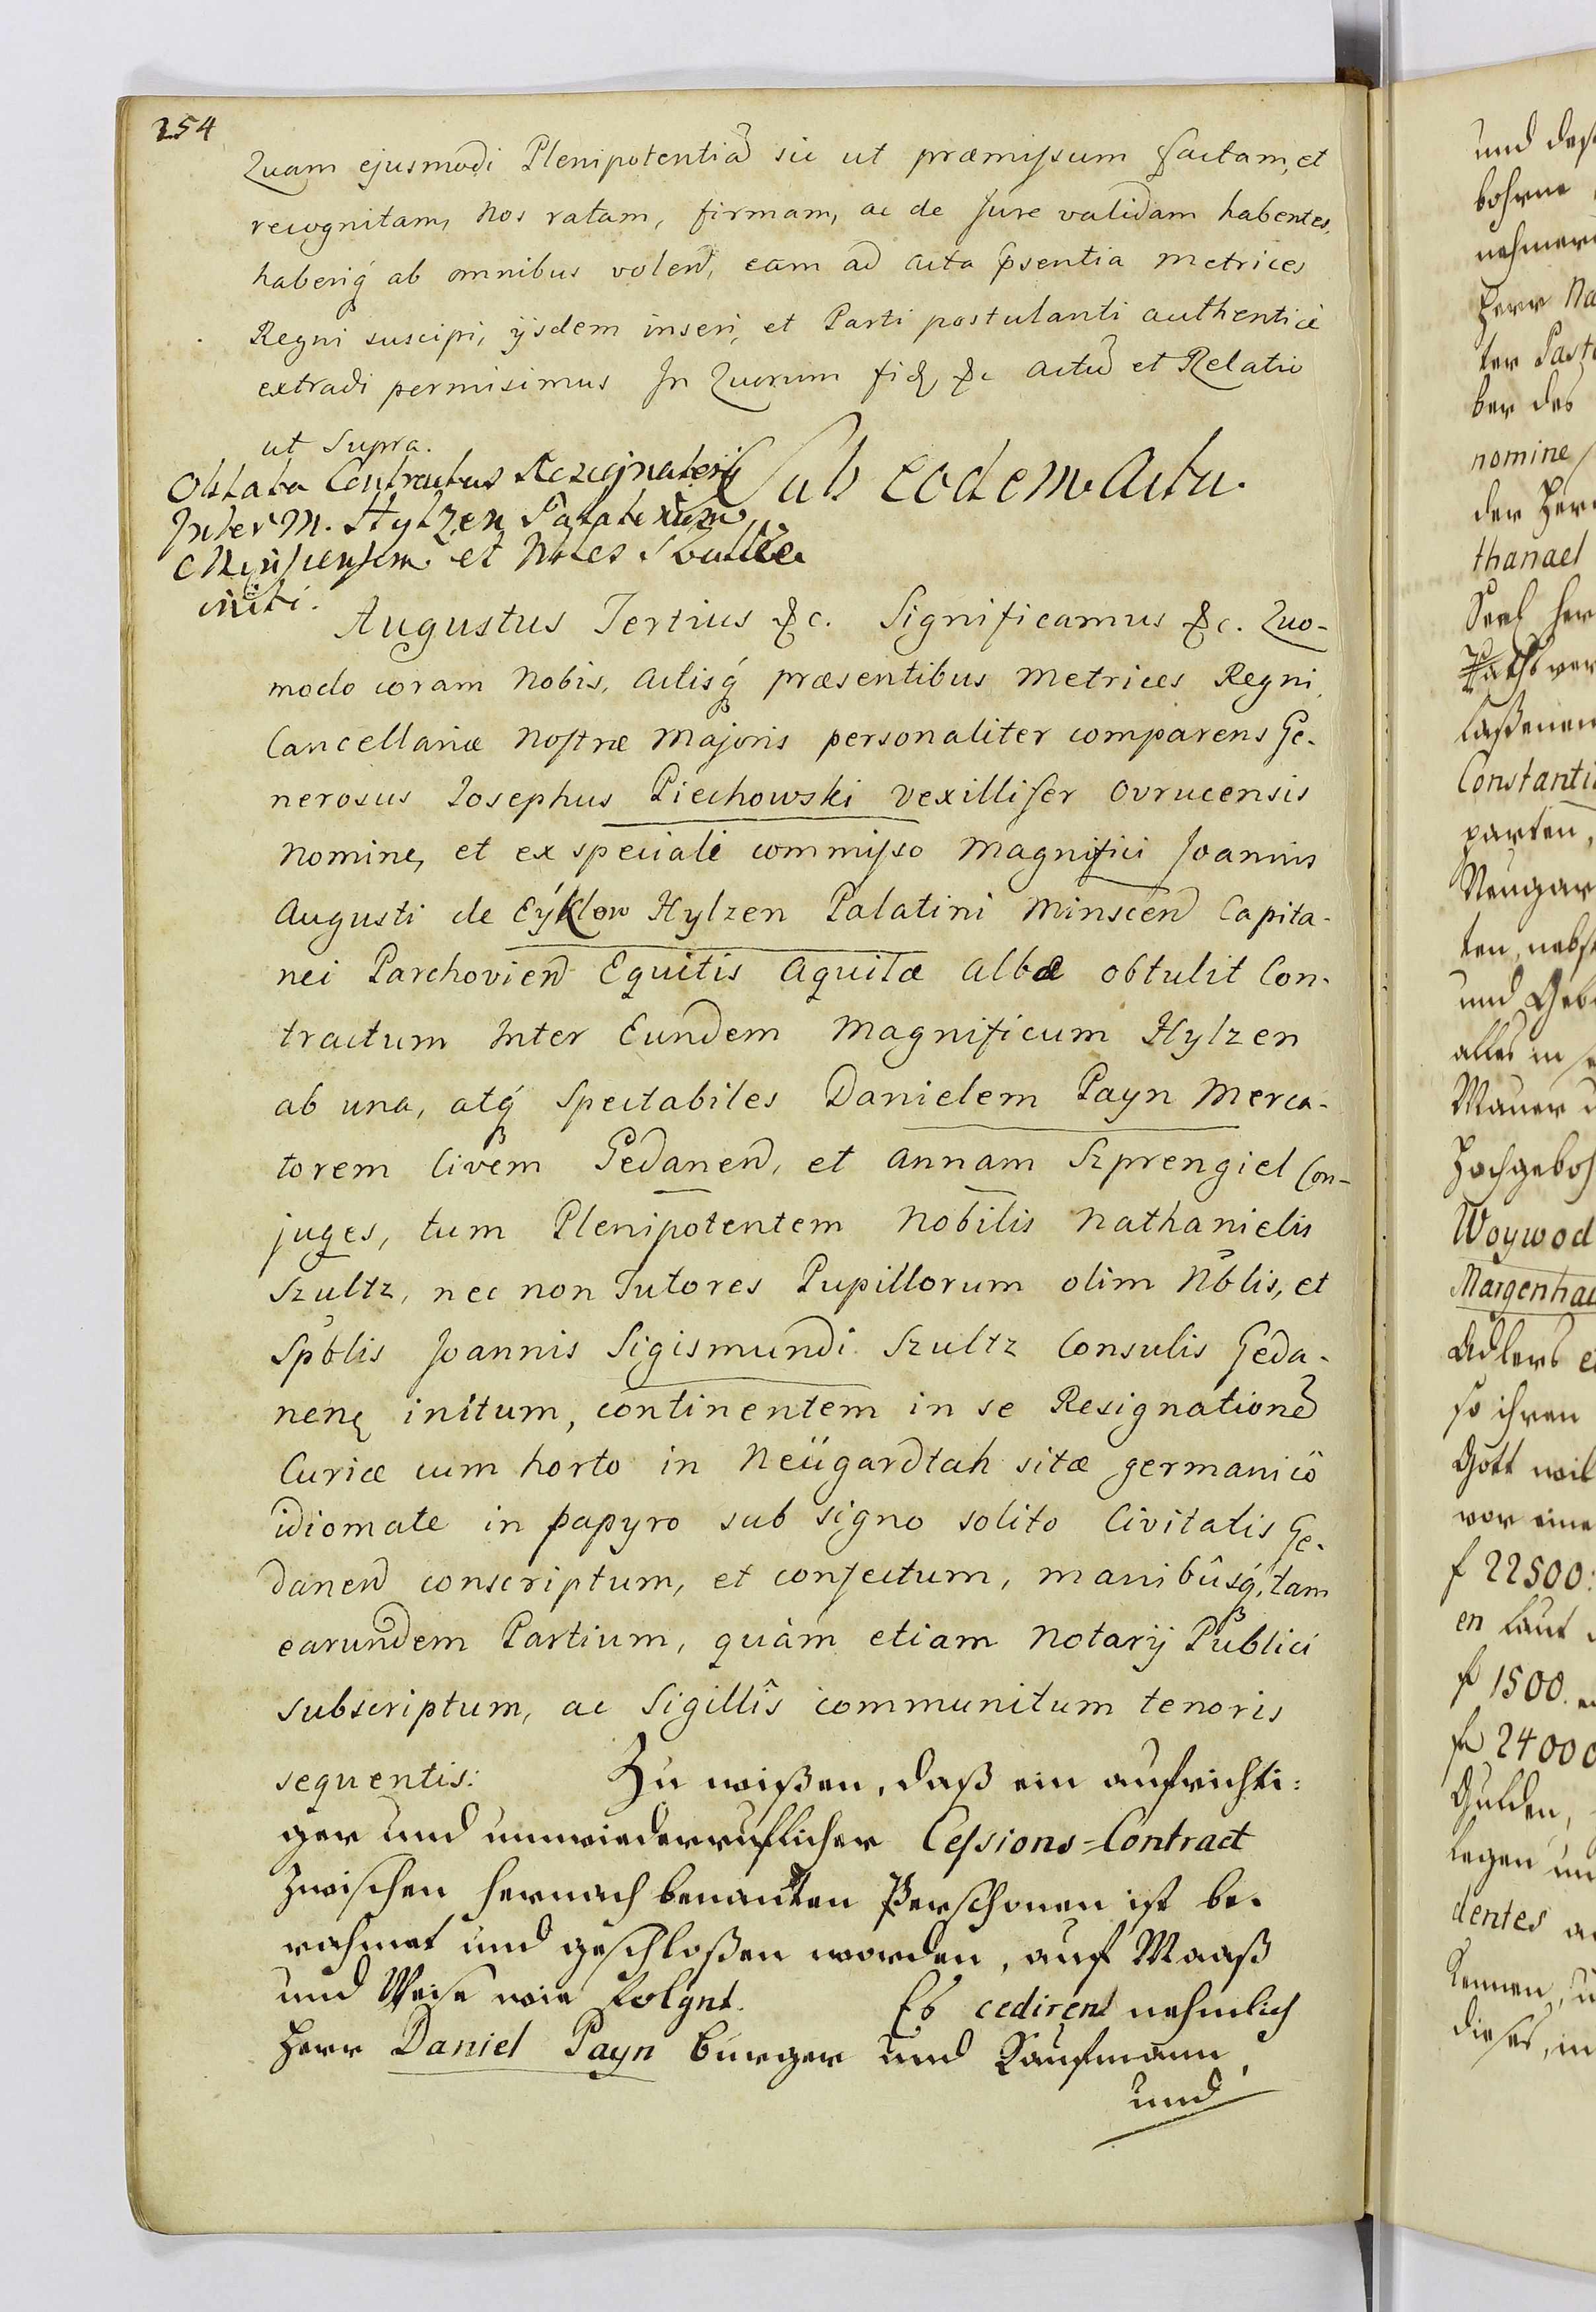 254
Quam ejusmodi Plenipotentiã sic ut præmissum factam, et
recognitam, Nos ratam, firmam, ac de Jure validam habentes,
haberiq́ ab omnibus volen̄, eam ad acta p̃sentia metrices
Regni suscipi, ijsdem inseri, et Parti postulanti authenticè
extradi permisimus In Quorum fiđ &c actũ et Relatio
ut Supra.
Sub eodem Actu.
Oblata Contractus Resignatorij
Inter M. Hylzen Palatinum
Minscensem et Nobles Szultze
initi.
Augustus Tertius &c. Significamus &c. Quo-
modo coram Nobis, Actisq́ præsentibus Metrices Regni
Cancellariæ Nostræ Majoris personaliter comparens Ge-
nerosus Josephus Piechowski Vexillifer Ovrucensis
Nomine, et ex speciali commisso Magnifici Joannis
Augusti de Eyklow Hylzen Palatini Minscen̄ Capita-
nei Parchovien̄ Equitis Aquilæ Albæ obtulit Con-
tractum Inter Eundem Magnificum Hylzen
ab una, atq́ Spectabiles Danielem Payn Merca-
torem Civem Gedanen̄, et Annam Szprengiel Con-
juges, tum Plenipotentem Nobilis Nathanielis
Szultz, nec non Tutores Pupillorum olim Nblis, et
Spblis Joannis Sigismundi Szultz Consulis Geda-
nenę initum, continentem in se Resignationẽ
Curiæ cum horto in Neügardtah sitæ germanicô
idiomate in papyro sub signo solito Civitatis Ge-
danen̄ conscriptum, et confectum, manibûsq́, tam
earundem Partium, quàm etiam Notarij Publici
subscriptum, ac Sigillîs communitum tenoris
sequentis: Zu wißen, daß ein aufrichti:
ger und unwiederruflicher Cessions-Contract
zwischen hernach benanten Perschonen ist be-
rahmet und geschloßen worden, auf Maaß
und Weise wie folgnt. Es cedirent nehmlich
Herr Daniel Payn bürger und Kaufmann,
und
und des
bohrne
nehmern
Herr Na
ter Past
ber des
nomine
der Herr
thanael
Seel her
Raths ver
laßenen
Constanti
garten,
Neugar
ten, nebst
und Geb
alles in
Mauer u
Hochgeboh
Woywod
Margenha
Adlers
so ihren
Gott wil
vor eine
f 22500:
en laut
f 1500.
f 24000
Gulden,
legen un
dentes
Kennen, u
dieses, in